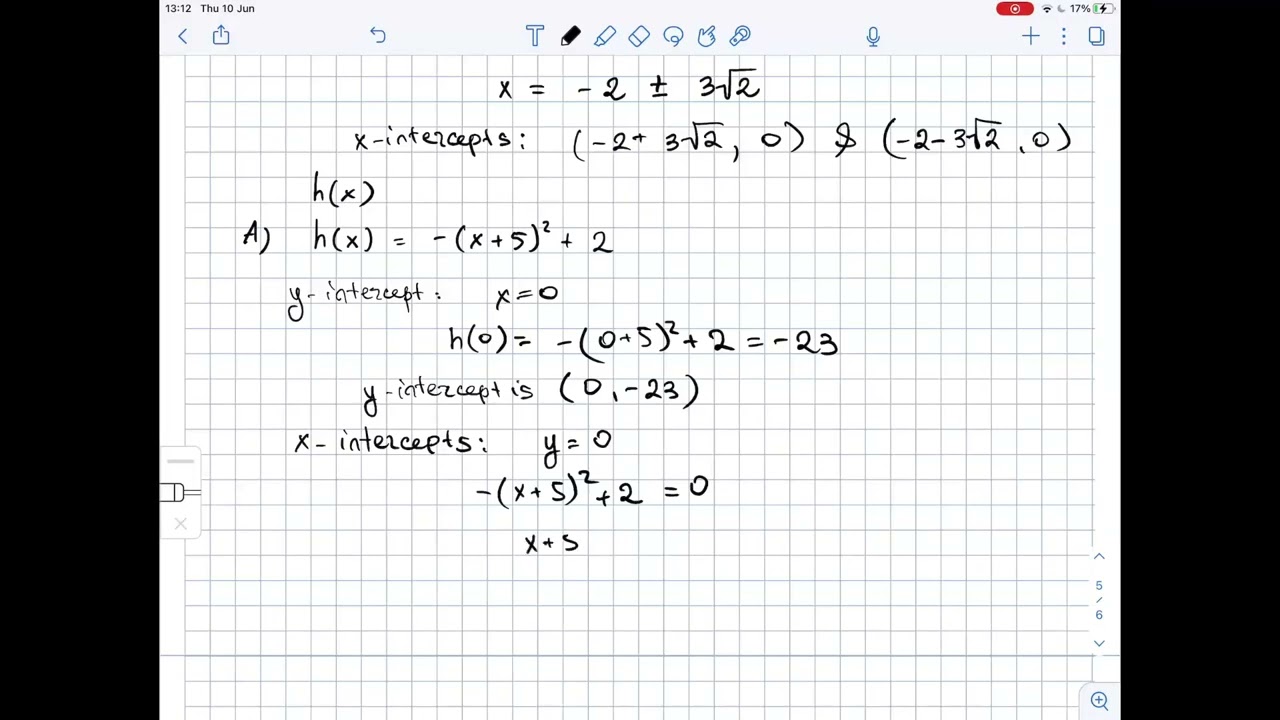 13:12 Thu 10 Jun 17%
T
x = -2 ± 3√2
x-intercepts: (-2+ 3√2, 0) & (-2-3√2, 0)
h(x)
A) h(x) = -(x+5)² + 2
y-intercept: x=0
h(0)= -(0+5)²+2=-23
y-intercept is (0,-23)
x-intercepts: y=0
-(x+5)²+2 =0
x+5
5
6